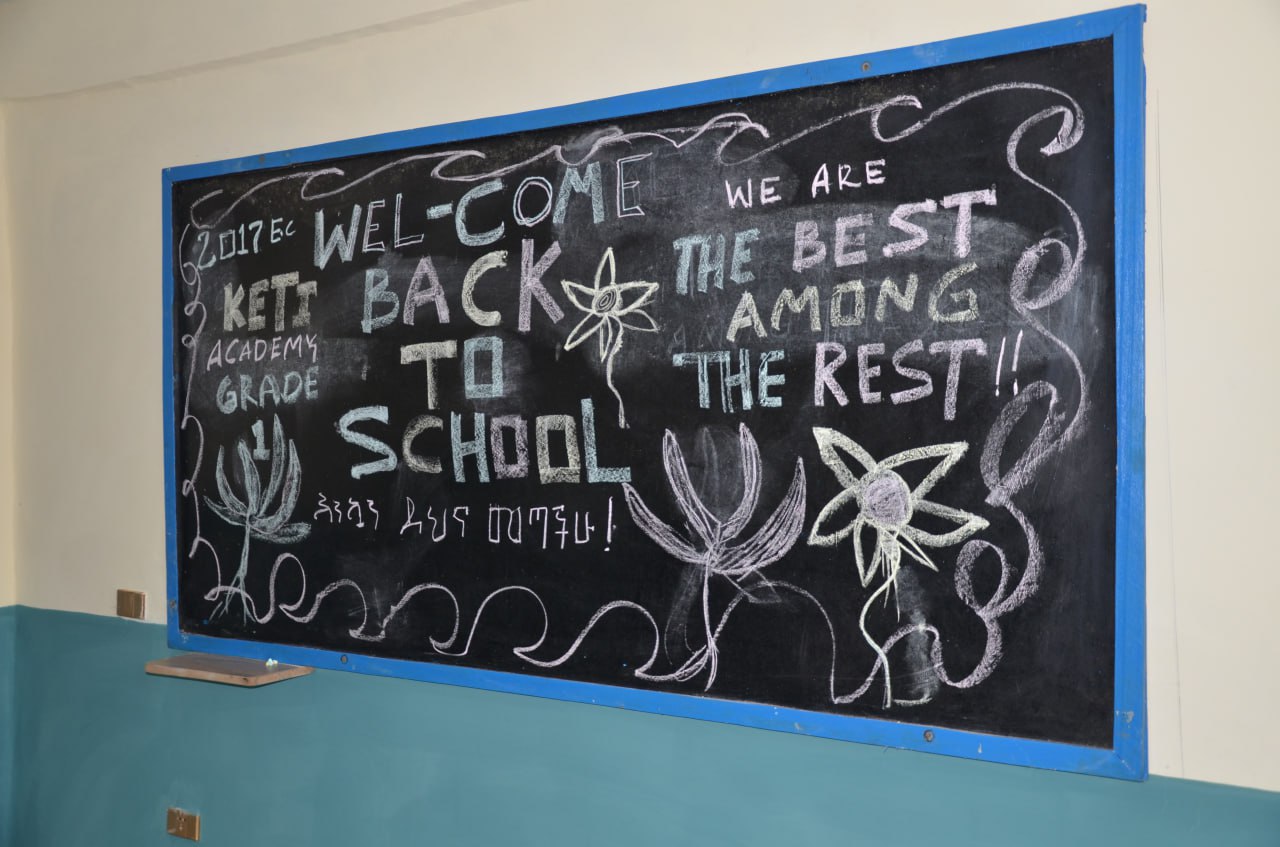 2017 E.C
KETI
ACADEMY
GRADE
1
WEL-COME
BACK
TO
SCHOOL
እንኳን ደህና መጣችሁ!
WE ARE
THE BEST
AMONG
THE REST!!